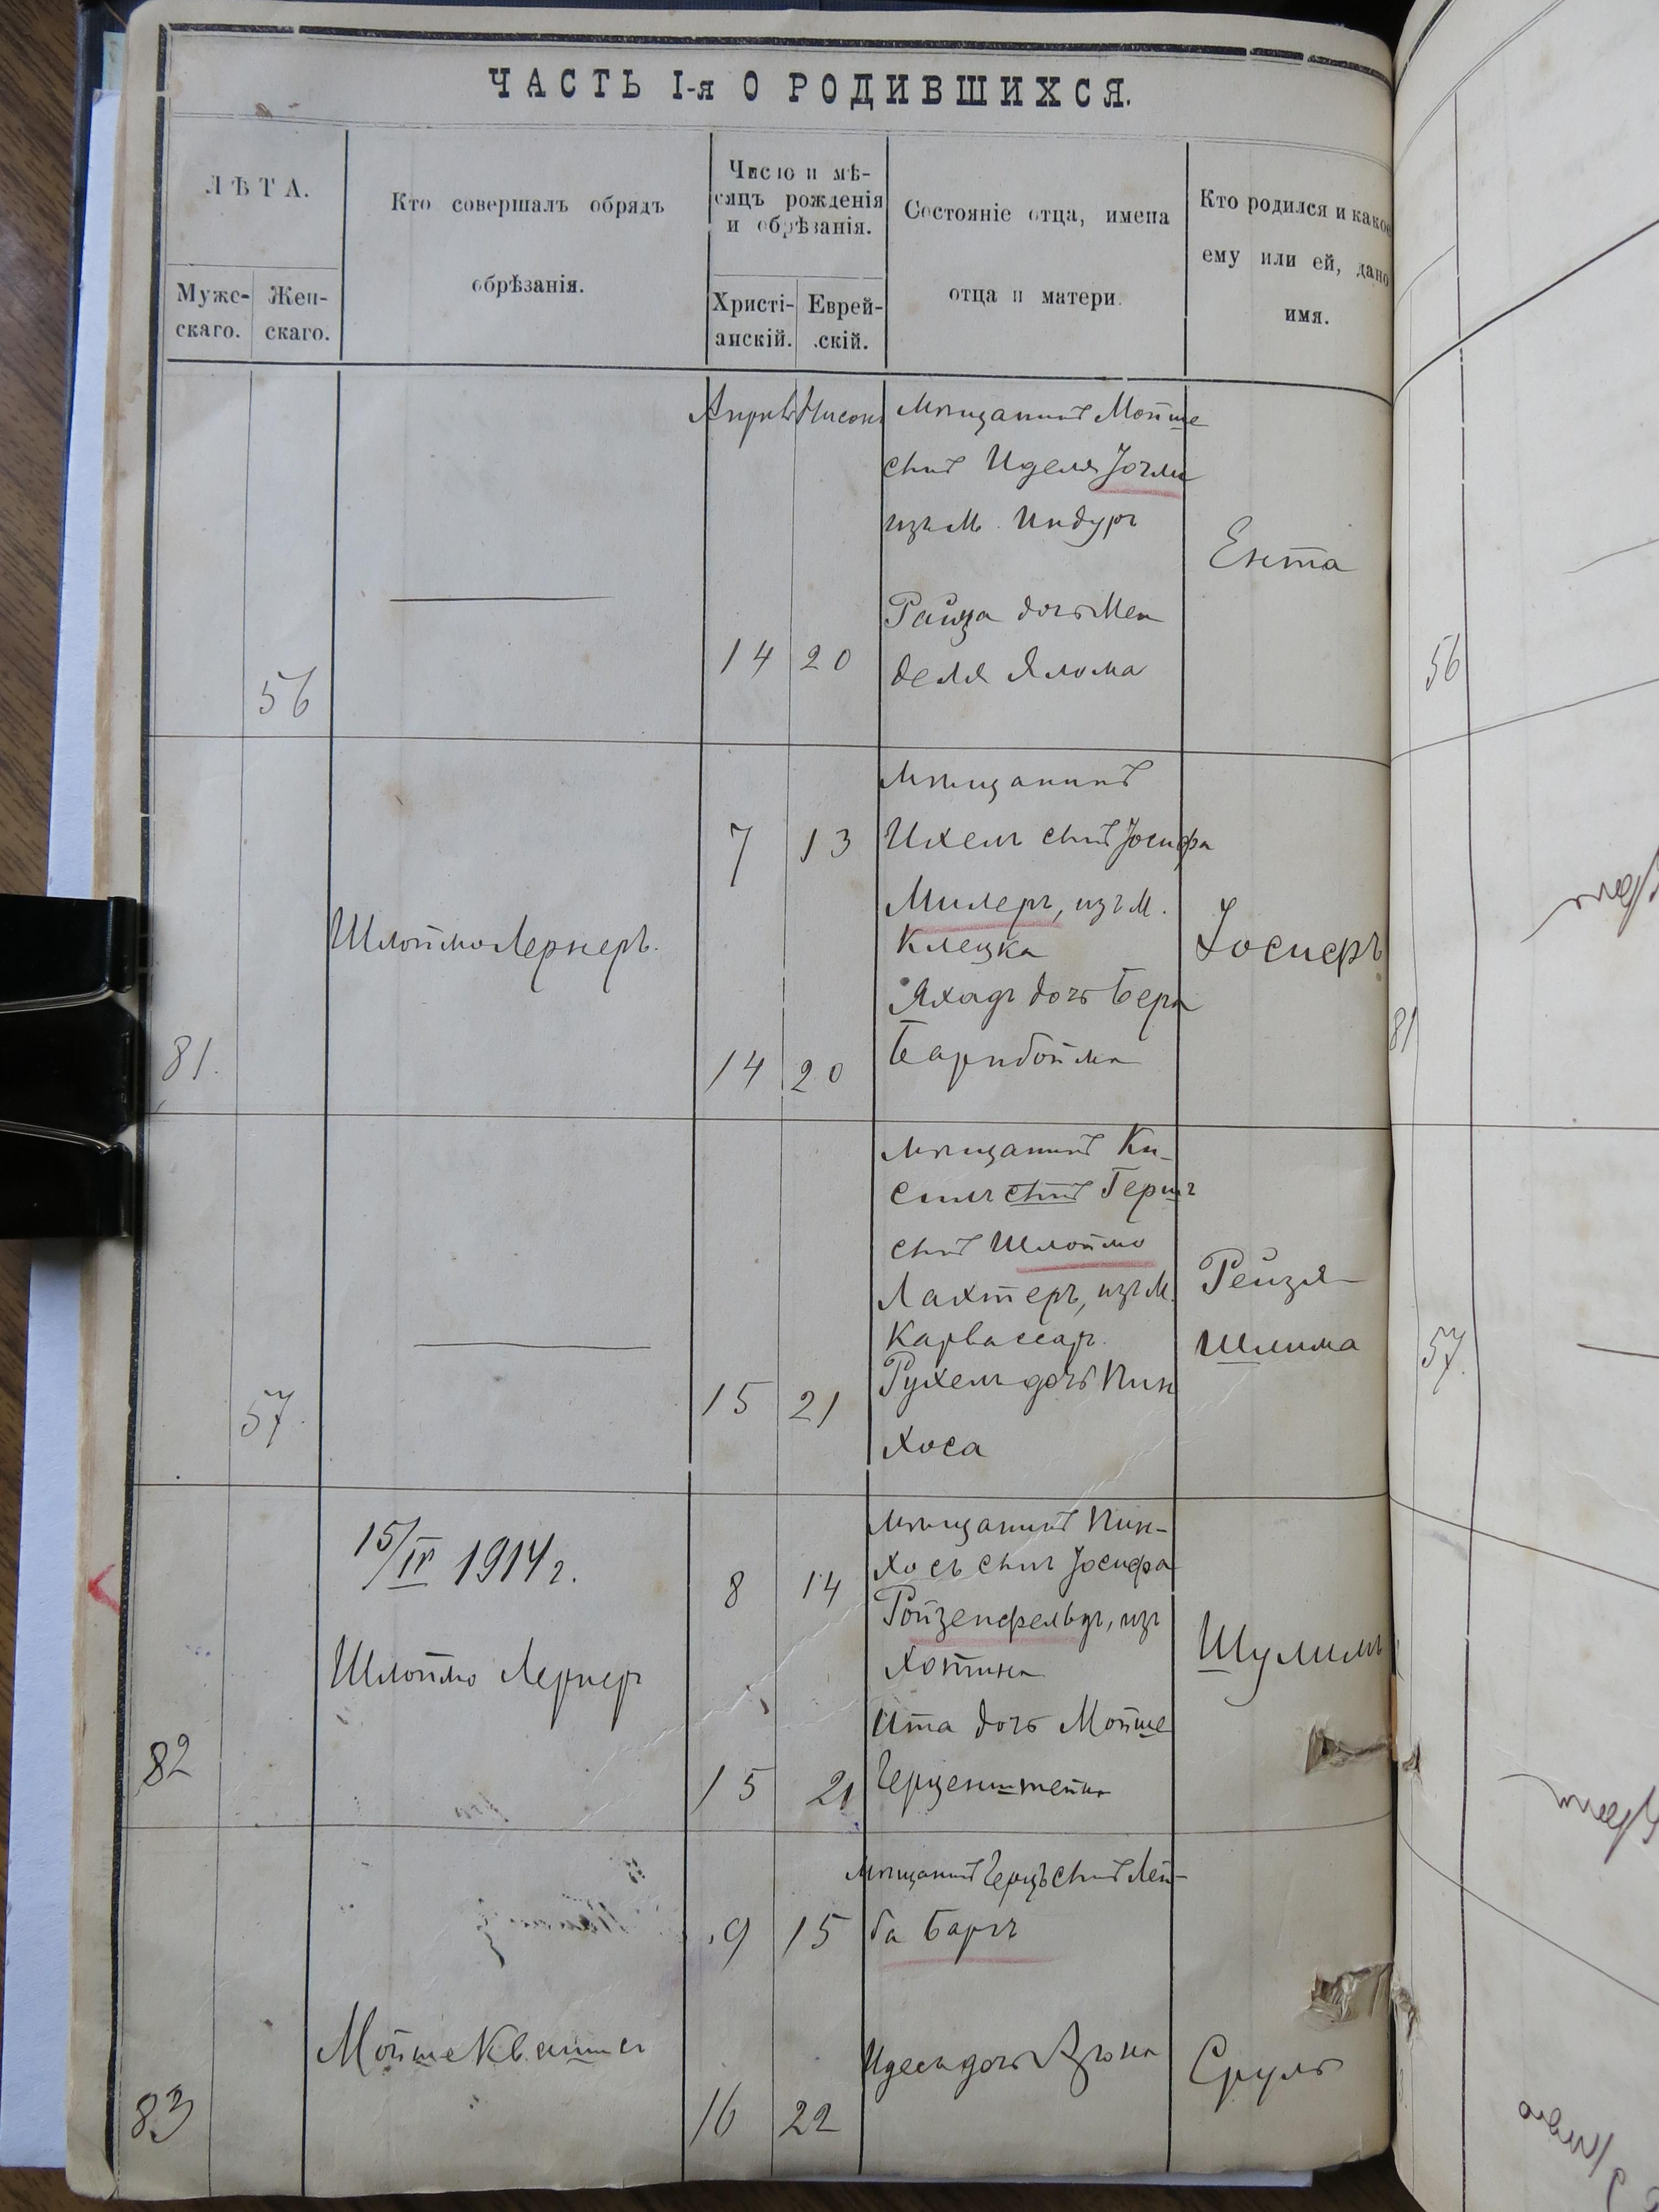 ЧАСТЬ I-я О РОДИВШИХСЯ.
ЛѢТА.
Муже-
скаго.
Жен-
скаго.
Кто совершалъ обрядъ
обрѣзанія.
Число и мѣ-
сяцъ рожденія
и обрѣзанія.
Христі-
анскій.
Еврей-
скій.
Состояніе отца, имена
отца и матери.
Кто родился и какое
ему или ей, дано
имя.
Апрѣль Нисонъ
56
14 20
Мѣщанинъ Мойше
сынъ Иделя
изъ м. Индуръ
Райза дочь Мен
деля Ялома
Ента
81.
Шлоймо Лернеръ.
7 13
14 20
Мѣщанинъ
Ихель сынъ Іосифа
Милеръ, изъ м.
Клецка
Яхадъ дочь Бера
Іосифъ
57.
15 21
Мѣщанинъ Ки-
силь сынъ Герша
сынъ Шлоймо
Лахтеръ, изъ м.
Карвасаръ.
Рухель дочь Пин
хоса
Рейзя
Шлима
82
15/IV 1914 г.
Шлоймо Лернеръ
8 14
15 21
Мѣщанинъ Пин-
хосъ сынъ Іосифа
Ройзенфельдъ, изъ
Хотина
Ита дочь Мойше
Герценштейна
Шулимъ
83
9 15
16 22
Мѣщанинъ Герцъ сынъ Лей-
ба Баргъ
Идесъ дочь
Сруль
56
81
57.